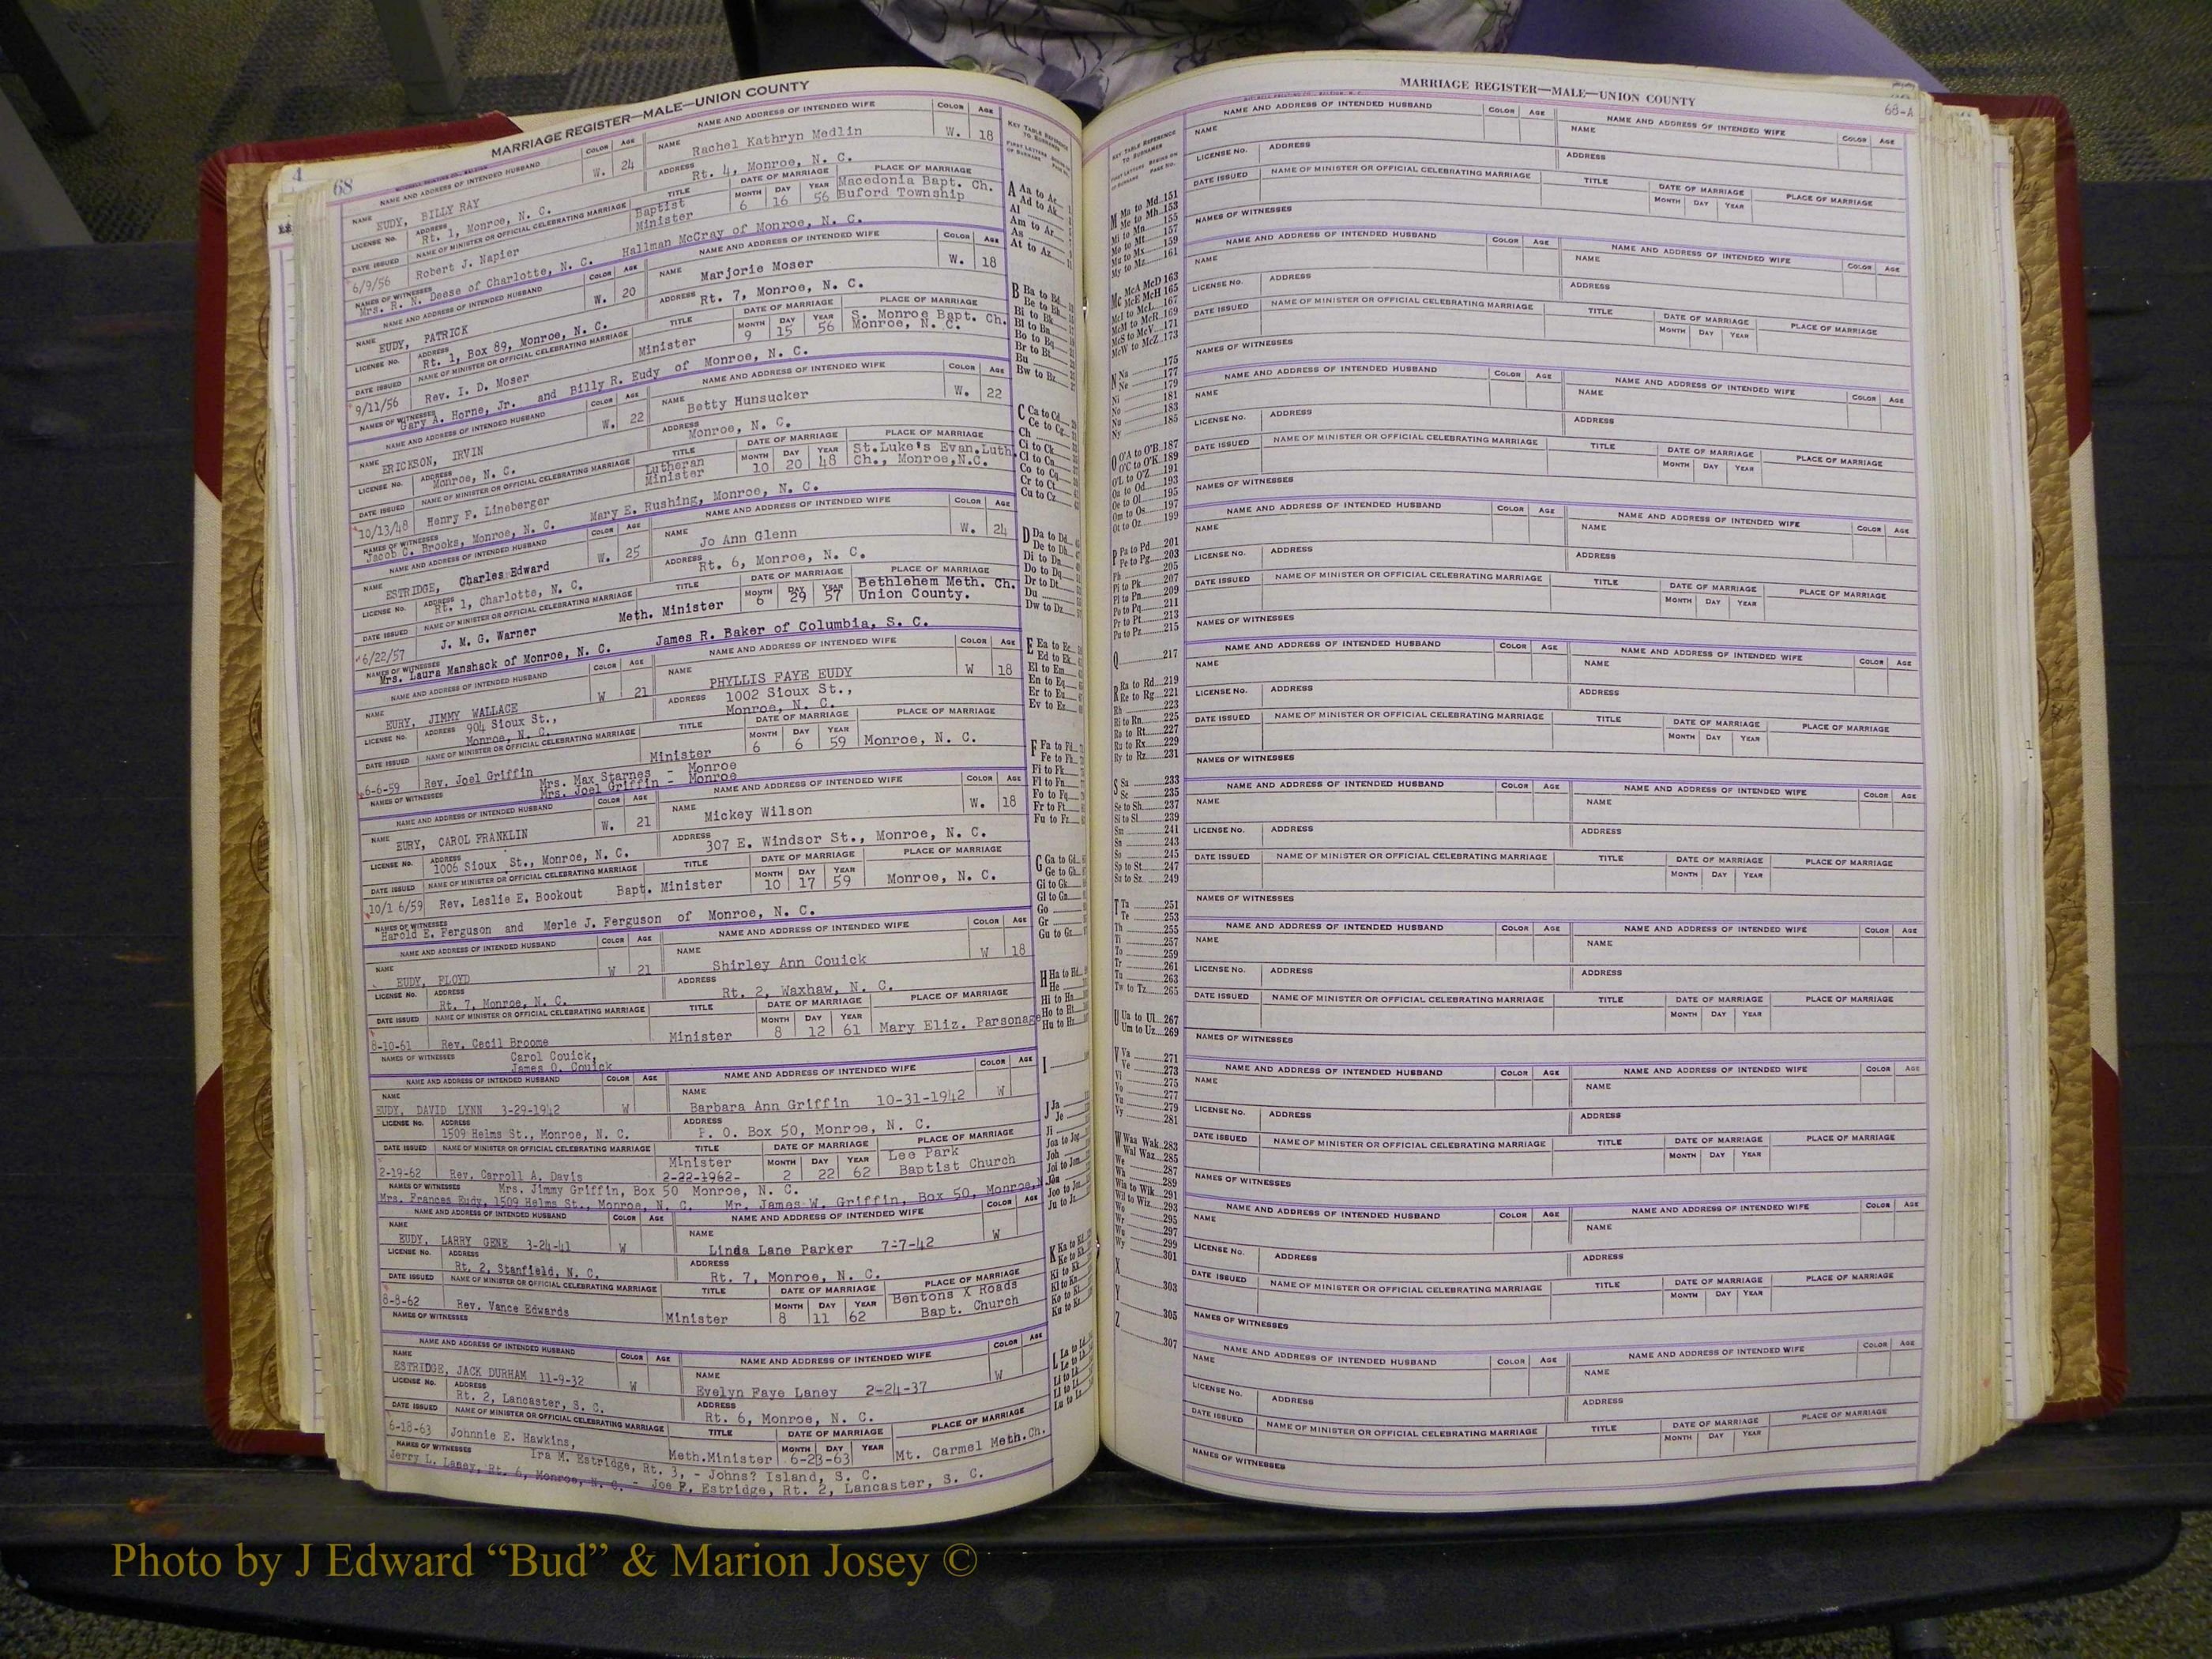 68
MARRIAGE REGISTER—MALE—UNION COUNTY
NAME AND ADDRESS OF INTENDED HUSBAND COLOR AGE NAME AND ADDRESS OF INTENDED WIFE COLOR AGE
NAME EUDY, BILLY RAY W. 24 NAME Rachel Kathryn Medlin W. 18
LICENSE No. ADDRESS Rt. 1, Monroe, N. C. ADDRESS Rt. 4, Monroe, N. C.
DATE ISSUED NAME OF MINISTER OR OFFICIAL CELEBRATING MARRIAGE TITLE DATE OF MARRIAGE PLACE OF MARRIAGE
6/9/56 Robert J. Napier Baptist Minister MONTH 6 DAY 16 YEAR 56 Macedonia Bapt. Ch. Buford Township
NAMES OF WITNESSES Mrs. R. N. Deese of Charlotte, N. C. Hallman McCray of Monroe, N. C.
NAME AND ADDRESS OF INTENDED HUSBAND COLOR AGE NAME AND ADDRESS OF INTENDED WIFE COLOR AGE
NAME EUDY, PATRICK W. 20 NAME Marjorie Moser W. 18
LICENSE No. ADDRESS Rt. 1, Box 89, Monroe, N. C. ADDRESS Rt. 7, Monroe, N. C.
DATE ISSUED NAME OF MINISTER OR OFFICIAL CELEBRATING MARRIAGE TITLE DATE OF MARRIAGE PLACE OF MARRIAGE
9/11/56 Rev. I. D. Moser Minister MONTH 9 DAY 15 YEAR 56 S. Monroe Bapt. Ch. Monroe, N. C.
NAMES OF WITNESSES Gary A. Horne, Jr. and Billy R. Eudy of Monroe, N. C.
NAME AND ADDRESS OF INTENDED HUSBAND COLOR AGE NAME AND ADDRESS OF INTENDED WIFE COLOR AGE
NAME ERICKSON, IRVIN W. 22 NAME Betty Hunsucker W. 22
LICENSE No. ADDRESS Monroe, N. C. ADDRESS Monroe, N. C.
DATE ISSUED NAME OF MINISTER OR OFFICIAL CELEBRATING MARRIAGE TITLE DATE OF MARRIAGE PLACE OF MARRIAGE
10/13/48 Henry F. Lineberger Lutheran Minister MONTH 10 DAY 20 YEAR 48 St.Luke's Evan.Luth. Ch., Monroe,N.C.
NAMES OF WITNESSES Jacob C. Brooks, Monroe, N. C. Mary E. Rushing, Monroe, N. C.
NAME AND ADDRESS OF INTENDED HUSBAND COLOR AGE NAME AND ADDRESS OF INTENDED WIFE COLOR AGE
NAME ESTRIDGE, Charles Edward W. 25 NAME Jo Ann Glenn W. 24
LICENSE No. ADDRESS Rt. 1, Charlotte, N. C. ADDRESS Rt. 6, Monroe, N. C.
DATE ISSUED NAME OF MINISTER OR OFFICIAL CELEBRATING MARRIAGE TITLE DATE OF MARRIAGE PLACE OF MARRIAGE
6/22/57 J. M. G. Warner Meth. Minister MONTH 6 DAY 29 YEAR 57 Bethlehem Meth. Ch. Union County.
NAMES OF WITNESSES Mrs. Laura Manshack of Monroe, N. C. James R. Baker of Columbia, S. C.
NAME AND ADDRESS OF INTENDED HUSBAND COLOR AGE NAME AND ADDRESS OF INTENDED WIFE COLOR AGE
NAME EURY, JIMMY WALLACE W 21 NAME PHYLLIS FAYE EUDY W 18
LICENSE No. ADDRESS 904 Sioux St., Monroe, N. C. ADDRESS 1002 Sioux St., Monroe, N. C.
DATE ISSUED NAME OF MINISTER OR OFFICIAL CELEBRATING MARRIAGE TITLE DATE OF MARRIAGE PLACE OF MARRIAGE
6-6-59 Rev. Joel Griffin Minister MONTH 6 DAY 6 YEAR 59 Monroe, N. C.
NAMES OF WITNESSES Mrs. Max Starnes - Monroe
Mrs. Joel Griffin - Monroe
NAME AND ADDRESS OF INTENDED HUSBAND COLOR AGE NAME AND ADDRESS OF INTENDED WIFE COLOR AGE
NAME EURY, CAROL FRANKLIN W. 21 NAME Mickey Wilson W. 18
LICENSE No. ADDRESS 1006 Sioux St., Monroe, N. C. ADDRESS 307 E. Windsor St., Monroe, N. C.
DATE ISSUED NAME OF MINISTER OR OFFICIAL CELEBRATING MARRIAGE TITLE DATE OF MARRIAGE PLACE OF MARRIAGE
10/1 6/59 Rev. Leslie E. Bookout Bapt. Minister MONTH 10 DAY 17 YEAR 59 Monroe, N. C.
NAMES OF WITNESSES Harold E. Ferguson and Merle J. Ferguson of Monroe, N. C.
NAME AND ADDRESS OF INTENDED HUSBAND COLOR AGE NAME AND ADDRESS OF INTENDED WIFE COLOR AGE
NAME EUDY, FLOYD W 21 NAME Shirley Ann Couick W 18
LICENSE No. ADDRESS Rt. 7, Monroe, N. C. ADDRESS Rt. 2, Waxhaw, N. C.
DATE ISSUED NAME OF MINISTER OR OFFICIAL CELEBRATING MARRIAGE TITLE DATE OF MARRIAGE PLACE OF MARRIAGE
8-10-61 Rev. Cecil Broome Minister MONTH 8 DAY 12 YEAR 61 Mary Eliz. Parsonage
NAMES OF WITNESSES Carol Couick,
James O. Couick
NAME AND ADDRESS OF INTENDED HUSBAND COLOR AGE NAME AND ADDRESS OF INTENDED WIFE COLOR AGE
NAME EUDY, DAVID LYNN 3-29-1942 W NAME Barbara Ann Griffin 10-31-1942 W
LICENSE No. ADDRESS 1509 Helms St., Monroe, N. C. ADDRESS P. O. Box 50, Monroe, N. C.
DATE ISSUED NAME OF MINISTER OR OFFICIAL CELEBRATING MARRIAGE TITLE DATE OF MARRIAGE PLACE OF MARRIAGE
2-19-62 Rev. Carroll A. Davis Minister 2-22-1962- MONTH 2 DAY 22 YEAR 62 Lee Park Baptist Church
NAMES OF WITNESSES Mrs. Jimmy Griffin, Box 50 Monroe, N. C.
Mrs. Frances Eudy, 1509 Helms St., Monroe, N. C. Mr. James W. Griffin, Box 50, Monroe,N
NAME AND ADDRESS OF INTENDED HUSBAND COLOR AGE NAME AND ADDRESS OF INTENDED WIFE COLOR AGE
NAME EUDY, LARRY GENE 3-24-41 W NAME Linda Lane Parker 7-7-42 W
LICENSE No. ADDRESS Rt. 2, Stanfield, N. C. ADDRESS Rt. 7, Monroe, N. C.
DATE ISSUED NAME OF MINISTER OR OFFICIAL CELEBRATING MARRIAGE TITLE DATE OF MARRIAGE PLACE OF MARRIAGE
8-8-62 Rev. Vance Edwards Minister MONTH 8 DAY 11 YEAR 62 Bentons X Roads Bapt. Church
NAMES OF WITNESSES
NAME AND ADDRESS OF INTENDED HUSBAND COLOR AGE NAME AND ADDRESS OF INTENDED WIFE COLOR AGE
NAME ESTRIDGE, JACK DURHAM 11-9-32 W NAME Evelyn Faye Laney 2-24-37 W
LICENSE No. ADDRESS Rt. 2, Lancaster, S. C. ADDRESS Rt. 6, Monroe, N. C.
DATE ISSUED NAME OF MINISTER OR OFFICIAL CELEBRATING MARRIAGE TITLE DATE OF MARRIAGE PLACE OF MARRIAGE
6-18-63 Johnnie E. Hawkins, Meth.Minister MONTH DAY YEAR 6-23-63 Mt. Carmel Meth.Ch.
NAMES OF WITNESSES Ira M. Estridge, Rt. 3, - Johns? Island, S. C.
Jerry L. Laney, Rt. 6, Monroe, N. C. - Joe F. Estridge, Rt. 2, Lancaster, S. C.
KEY TABLE REFERENCE TO SURNAMES
A Aa to Ac
Ad to Ak
Al
Am to Ar
As
At to Az
B Ba to Bd
Be to Bh
Bi to Bk
Bl to Bn
Bo to Bq
Br to Bt
Bu
Bw to Bz
C Ca to Cd
Ce to Cg
Ch
Ci to Ck
Cl to Cn
Co to Cq
Cr to Ct
Cu to Cz
D Da to Dd
De to Dh
Di to Dn
Do to Dq
Dr to Dt
Du
Dw to Dz
E Ea to Ec
Ed to Ek
El to Em
En to Eq
Er to Eu
Ev to Ez
F Fa to Fd
Fe to Fh
Fi to Fk
Fl to Fn
Fo to Fq
Fr to Ft
Fu to Fz
G Ga to Gd
Ge to Gh
Gi to Gk
Gl to Gn
Go
Gr
Gu to Gz
H Ha to Hd
He
Hi to Hn
Ho to Ht
Hu to Hz
I
J Ja
Je
Ji
Joa to Jog
Joh
Joi to Jom
Jon
Joo to Joz
Ju to Jz
K Ka to Kd
Ke to Kh
Ki to Kk
Kl to Kn
Ko to Kt
Ku to Kz
MARRIAGE REGISTER—MALE—UNION COUNTY
68-A
KEY TABLE REFERENCE TO SURNAMES
FIRST LETTERS OF SURNAME BEGINS ON PAGE No.
M Ma to Md 151
Me to Mh 153
Mi to Mn 155
Mo to Mt 157
Mu to Mx 159
My to Mz 161
Mc McA McD 163
McE McH 165
McI to McL 167
McM to McR 169
McS to McV 171
McW to McZ 173
N Na 175
Ne 177
Ni 179
No 181
Nu 183
Ny 185
O O'A to O'B 187
O'C to O'K 189
O'L to O'Z 191
Oa to Od 193
Oe to Ol 195
Om to Os 197
Ot to Oz 199
P Pa to Pd 201
Pe to Pg 203
Ph 205
Pi to Pk 207
Pl to Pn 209
Po to Pq 211
Pr to Pt 213
Pu to Pz 215
Q 217
R Ra to Rd 219
Re to Rg 221
Rh 223
Ri to Rn 225
Ro to Rt 227
Ru to Rx 229
Ry to Rz 231
S Sa 233
Sc 235
Se to Sh 237
Si to Sl 239
Sm 241
Sn 243
So 245
Sp to St 247
Su to Sz 249
T Ta 251
Te 253
Th 255
Ti 257
To 259
Tr 261
Tu 263
Tw to Tz 265
U Ua to Ul 267
Um to Uz 269
V Va 271
Ve 273
Vi 275
Vo 277
Vu 279
Vy 281
W Waa Wak 283
Wal Waz 285
We 287
Wh 289
Wia to Wik 291
Wil to Wiz 293
Wo 295
Wr 297
Wu 299
Wy 301
X
Y 303
305
Z 307
NAME AND ADDRESS OF INTENDED HUSBAND COLOR AGE NAME AND ADDRESS OF INTENDED WIFE COLOR AGE
NAME NAME
LICENSE No. ADDRESS ADDRESS
DATE ISSUED NAME OF MINISTER OR OFFICIAL CELEBRATING MARRIAGE TITLE DATE OF MARRIAGE PLACE OF MARRIAGE
MONTH DAY YEAR
NAMES OF WITNESSES
NAME AND ADDRESS OF INTENDED HUSBAND COLOR AGE NAME AND ADDRESS OF INTENDED WIFE COLOR AGE
NAME NAME
LICENSE No. ADDRESS ADDRESS
DATE ISSUED NAME OF MINISTER OR OFFICIAL CELEBRATING MARRIAGE TITLE DATE OF MARRIAGE PLACE OF MARRIAGE
MONTH DAY YEAR
NAMES OF WITNESSES
NAME AND ADDRESS OF INTENDED HUSBAND COLOR AGE NAME AND ADDRESS OF INTENDED WIFE COLOR AGE
NAME NAME
LICENSE No. ADDRESS ADDRESS
DATE ISSUED NAME OF MINISTER OR OFFICIAL CELEBRATING MARRIAGE TITLE DATE OF MARRIAGE PLACE OF MARRIAGE
MONTH DAY YEAR
NAMES OF WITNESSES
NAME AND ADDRESS OF INTENDED HUSBAND COLOR AGE NAME AND ADDRESS OF INTENDED WIFE COLOR AGE
NAME NAME
LICENSE No. ADDRESS ADDRESS
DATE ISSUED NAME OF MINISTER OR OFFICIAL CELEBRATING MARRIAGE TITLE DATE OF MARRIAGE PLACE OF MARRIAGE
MONTH DAY YEAR
NAMES OF WITNESSES
NAME AND ADDRESS OF INTENDED HUSBAND COLOR AGE NAME AND ADDRESS OF INTENDED WIFE COLOR AGE
NAME NAME
LICENSE No. ADDRESS ADDRESS
DATE ISSUED NAME OF MINISTER OR OFFICIAL CELEBRATING MARRIAGE TITLE DATE OF MARRIAGE PLACE OF MARRIAGE
MONTH DAY YEAR
NAMES OF WITNESSES
NAME AND ADDRESS OF INTENDED HUSBAND COLOR AGE NAME AND ADDRESS OF INTENDED WIFE COLOR AGE
NAME NAME
LICENSE No. ADDRESS ADDRESS
DATE ISSUED NAME OF MINISTER OR OFFICIAL CELEBRATING MARRIAGE TITLE DATE OF MARRIAGE PLACE OF MARRIAGE
MONTH DAY YEAR
NAMES OF WITNESSES
NAME AND ADDRESS OF INTENDED HUSBAND COLOR AGE NAME AND ADDRESS OF INTENDED WIFE COLOR AGE
NAME NAME
LICENSE No. ADDRESS ADDRESS
DATE ISSUED NAME OF MINISTER OR OFFICIAL CELEBRATING MARRIAGE TITLE DATE OF MARRIAGE PLACE OF MARRIAGE
MONTH DAY YEAR
NAMES OF WITNESSES
NAME AND ADDRESS OF INTENDED HUSBAND COLOR AGE NAME AND ADDRESS OF INTENDED WIFE COLOR AGE
NAME NAME
LICENSE No. ADDRESS ADDRESS
DATE ISSUED NAME OF MINISTER OR OFFICIAL CELEBRATING MARRIAGE TITLE DATE OF MARRIAGE PLACE OF MARRIAGE
MONTH DAY YEAR
NAMES OF WITNESSES
NAME AND ADDRESS OF INTENDED HUSBAND COLOR AGE NAME AND ADDRESS OF INTENDED WIFE COLOR AGE
NAME NAME
LICENSE No. ADDRESS ADDRESS
DATE ISSUED NAME OF MINISTER OR OFFICIAL CELEBRATING MARRIAGE TITLE DATE OF MARRIAGE PLACE OF MARRIAGE
MONTH DAY YEAR
NAMES OF WITNESSES
NAME AND ADDRESS OF INTENDED HUSBAND COLOR AGE NAME AND ADDRESS OF INTENDED WIFE COLOR AGE
NAME NAME
LICENSE No. ADDRESS ADDRESS
DATE ISSUED NAME OF MINISTER OR OFFICIAL CELEBRATING MARRIAGE TITLE DATE OF MARRIAGE PLACE OF MARRIAGE
MONTH DAY YEAR
NAMES OF WITNESSES
Photo by J Edward “Bud” & Marion Josey ©